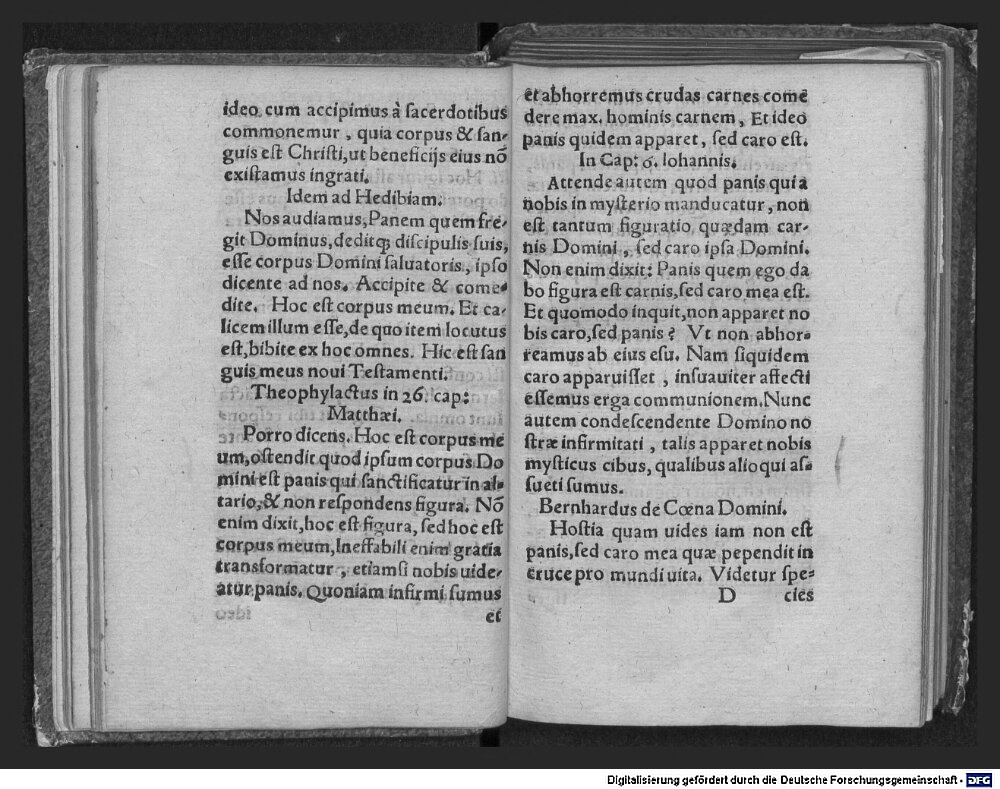 ideo cum accipimus à ſacerdotibus
commonemur, quia corpus & ſan-
guis eſt Chriſti, ut beneficijs eius nõ
exiſtamus ingrati.
Idem ad Hedibiam.
Nos audiamus, Panem quem fre-
git Dominus, deditq; diſcipulis ſuis,
eſſe corpus Domini ſaluatoris, ipſo
dicente ad nos. Accipite & come-
dite. Hoc eſt corpus meum. Et ca-
licem illum eſſe, de quo item locutus
eſt, bibite ex hoc omnes. Hic eſt ſan
guis meus noui Teſtamenti.
Theophylactus in 26. cap:
Matthæi.
Porro dicens. Hoc eſt corpus me
um, oſtendit quod ipſum corpus Do
mini eſt panis qui ſanctificatur in al-
tario, & non reſpondens figura. Nõ
enim dixit, hoc eſt figura, ſed hoc eſt
corpus meum, Ineffabili enim gratia
transformatur, etiamſi nobis uide-
atur panis. Quoniam infirmi ſumus
et
et abhorremus crudas carnes comē
dere max. hominis carnem, Et ideo
panis quidem apparet, ſed caro eſt.
In Cap: 6. Iohannis.
Attende autem quod panis qui a
nobis in myſterio manducatur, non
eſt tantum figuratio quædam car-
nis Domini, ſed caro ipſa Domini.
Non enim dixit: Panis quem ego da
bo figura eſt carnis, ſed caro mea eſt.
Et quomodo inquit, non apparet no
bis caro, ſed panis? Vt non abhor-
reamus ab eius eſu. Nam ſiquidem
caro apparuiſſet, inſuauiter affecti
eſſemus erga communionem. Nunc
autem condeſcendente Domino no
ſtræ infirmitati, talis apparet nobis
myſticus cibus, qualibus alioqui aſ-
ſueti ſumus.
Bernhardus de Cœna Domini.
Hoſtia quam uides iam non eſt
panis, ſed caro mea quæ pependit in
cruce pro mundi uita. Videtur ſpe-
D cies
Digitalisierung gefördert durch die Deutsche Forschungsgemeinschaft - DFG